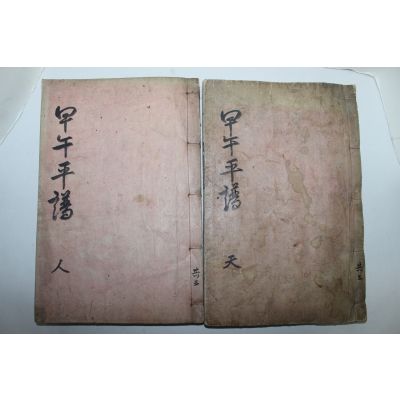 甲午平譜
人
共三
甲午平譜
天
共三